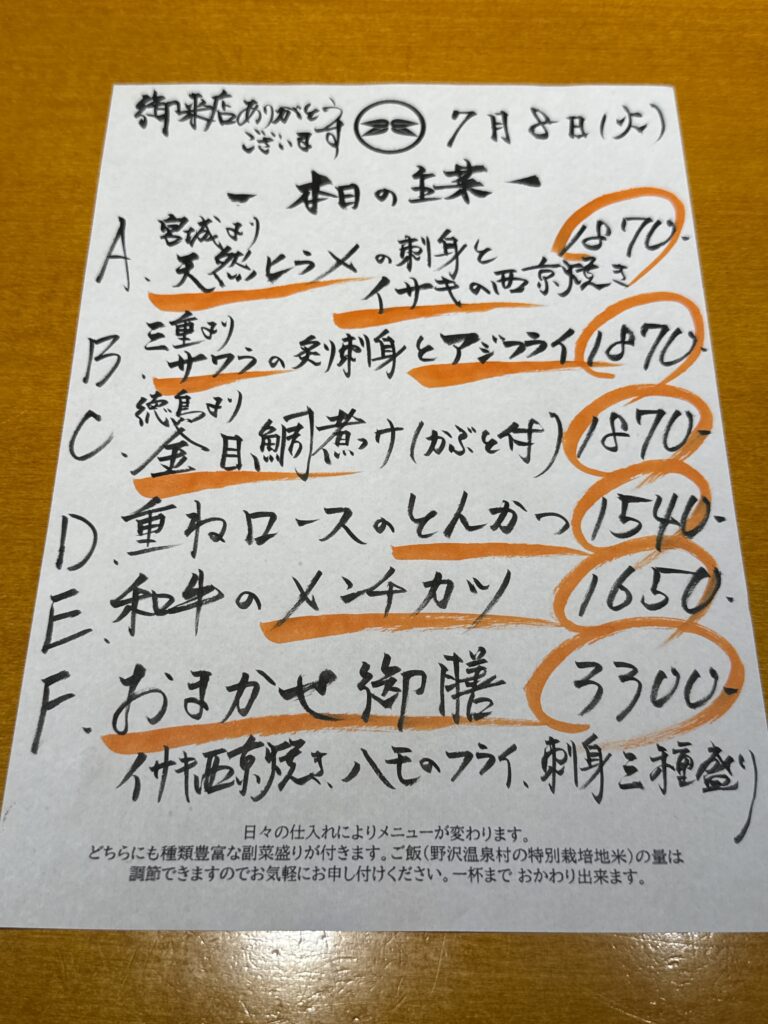 御来店ありがとう
ございます
7月8日(火)
- 本日の主菜 -
A. 宮城より 1870-
天然ヒラメの刺身と
イサキの西京焼き
B. 三重より
サワラの炙刺身とアジフライ 1870-
C. 徳島より
金目鯛煮つけ(かぶと付) 1870-
D. 重ねロースのとんかつ 1540-
E. 和牛のメンチカツ 1650-
F. おまかせ御膳 3300-
イサキ西京焼き、ハモのフライ、刺身三種盛り
日々の仕入れによりメニューが変わります。
どちらにも種類豊富な副菜盛りが付きます。ご飯(野沢温泉村の特別栽培地米)の量は
調節できますのでお気軽にお申し付けください。一杯まで おかわり出来ます。